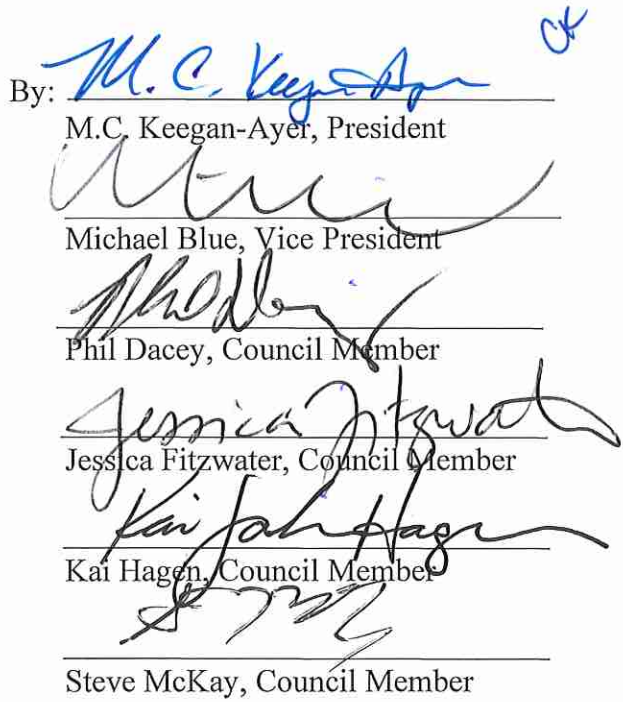 CK
By: M. C. Keegan-Ayer
M.C. Keegan-Ayer, President
Michael Blue, Vice President
Phil Dacey, Council Member
Jessica Fitzwater
Jessica Fitzwater, Council Member
Kai John Hagen
Kai Hagen, Council Member
Steve McKay, Council Member